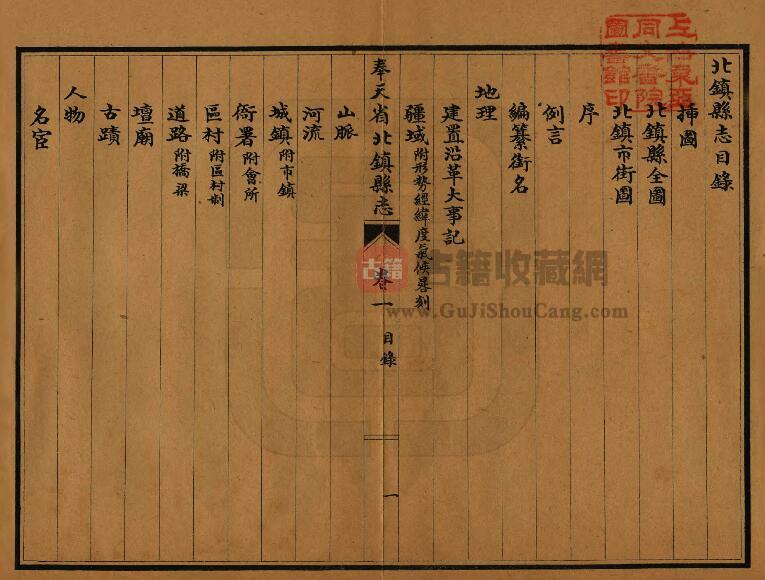 北鎮縣志目錄
插圖
北鎮縣全圖
北鎮市街圖
序
例言
編纂銜名
地理
建置沿革大事記
疆域附形勢經緯度氣候晷刻
奉天省北鎮縣志 卷一 目錄 一
山脈
河流
城鎮附市鎮
衙署附會所
區村附區村制
道路附橋梁
壇廟
古蹟
人物
名宦
上海東亞
同文書院
圖書館印
古籍
古籍收藏網
www.GuJiShouCang.com